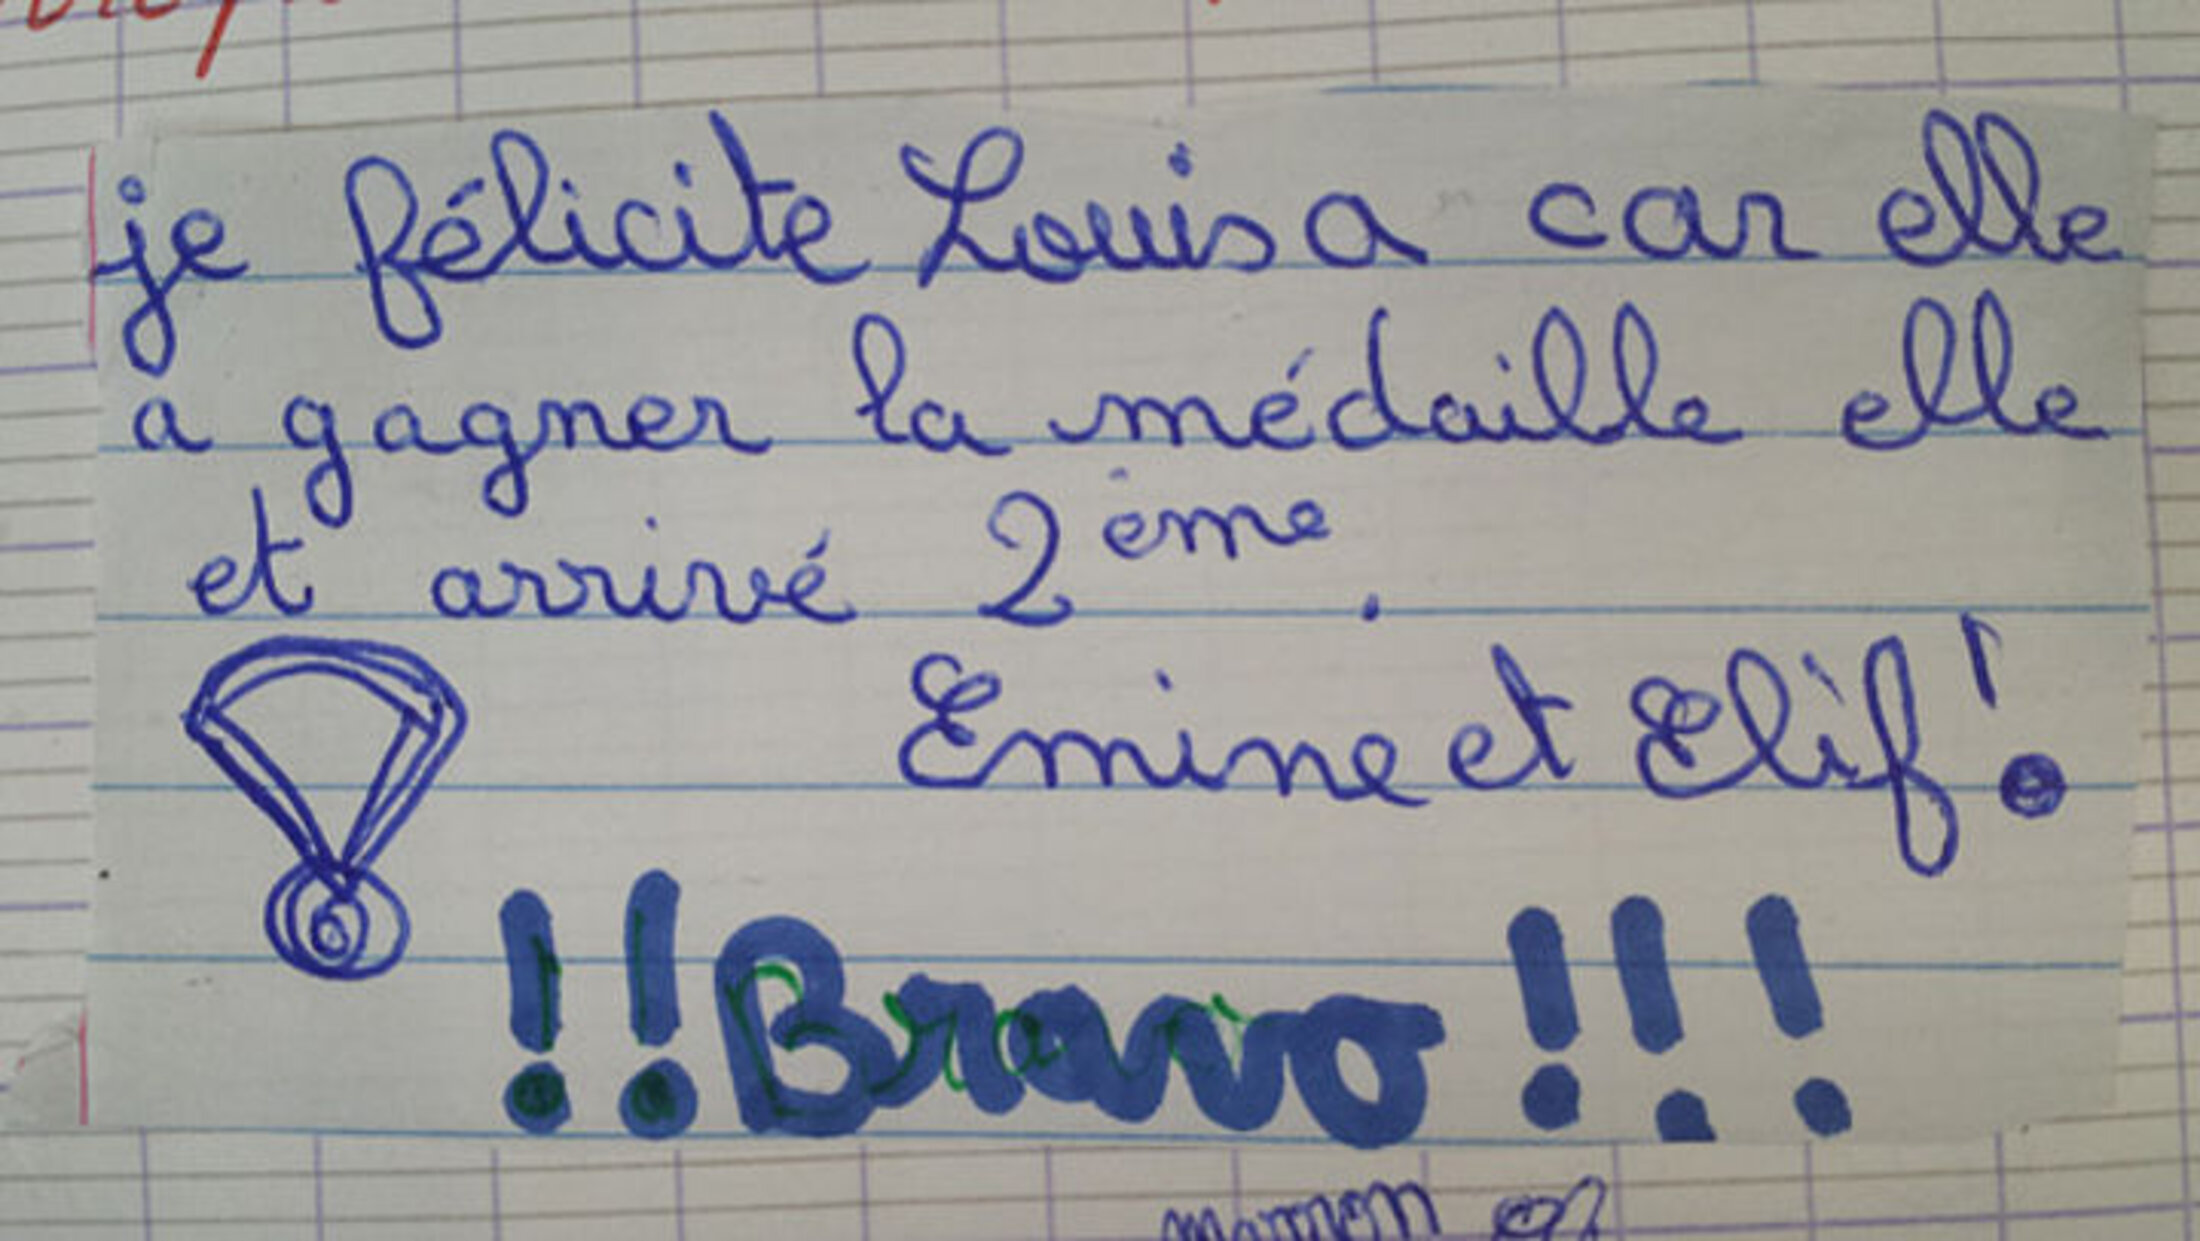 je félicite Louisa car elle
a gagner la médaille elle
et arrivé 2ème.
Emine et Elif !
!! Bravo !!!